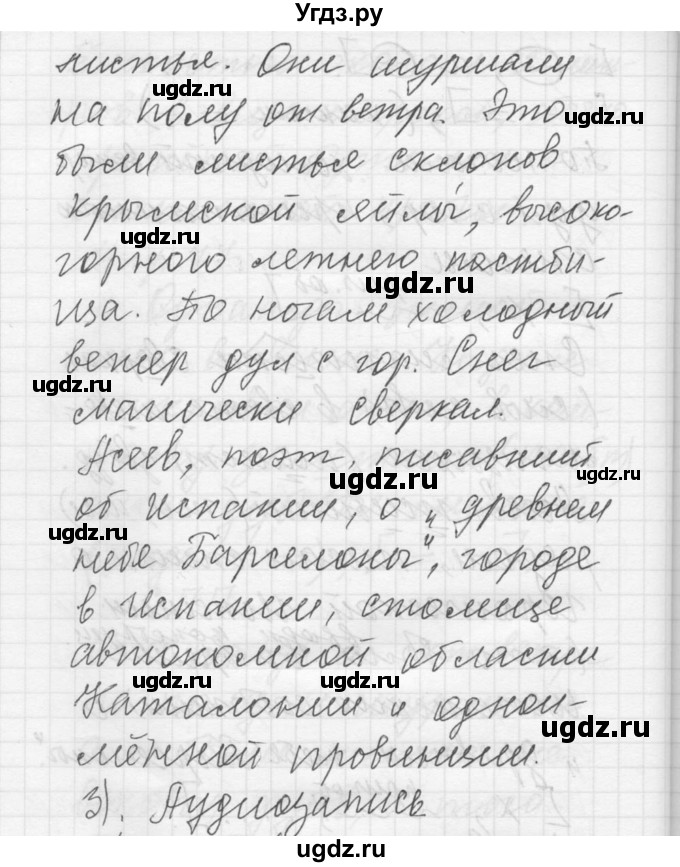 Угдз.ру
листья. Они шуршали
на полу от ветра. Это
были листья склонов
крымской яйлы, высоко-
горного летнего пастби-
ща. По ногам холодный
ветер дул с гор. Снег
магически сверкал.
Асеев, поэт, писавший
об Испании, о „древнем
небе Барселоны", городе
в Испании, столице
автономной области
Каталонии и одной-
мённой провинции.
3). Аудиозапись
ugdz.ru
ugdz.ru
ugdz.ru
ugdz.ru
ugdz.ru
ugdz.ru
ugdz.ru
ugdz.ru
ugdz.ru
ugdz.ru
ugdz.ru
ugdz.ru
ugdz.ru